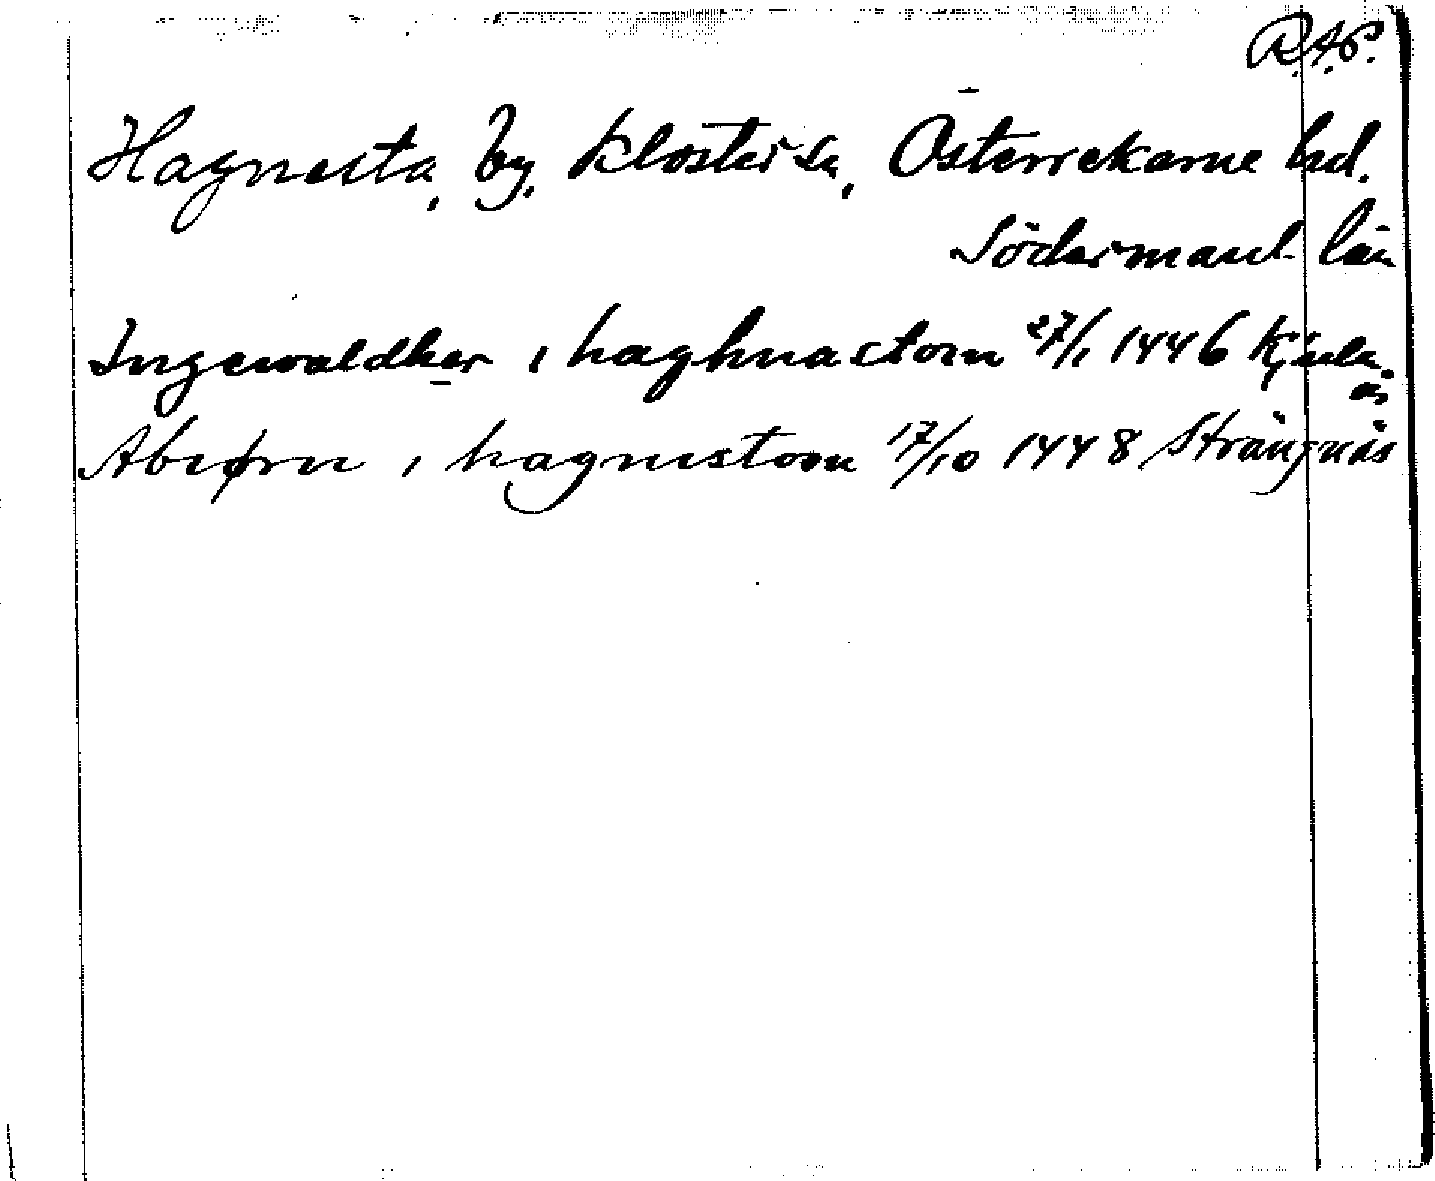 R.A.P.
Hagnesta, by, Klosters sn, Österrekarne hd.
Södermanl. län
Ingewaldher i haghnastom 27/1 1446 Kjulaås
Abiørn i hagnestom 17/10 1448 Strängnäs